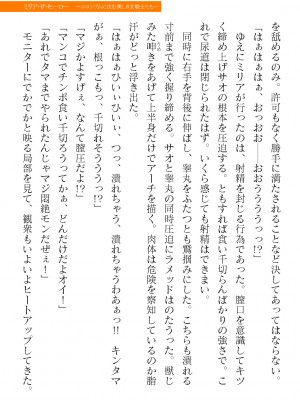 を舐めるのみ。許可もなく勝手に満たされることは決してあってはならない。
「はぁはぁはぁ、おっおお――おおうううっっ!?」
ゆえにミリアが行ったのは、射精を封じる行為であった。膣口を意識してキツ
く締め上げサオの根本を圧迫する。ともすれば食い千切らんばかりの強さで。こ
れで尿道は閉じられたはず。いくら感じても射精はできまい。
同時に右手を背後に伸ばし、睾丸をふたつとも鷲掴みにした。こちらも潰れる
寸前まで強く握り締める。サオと睾丸の同時圧迫にラメッドはのたうった。獣じ
みた呻きをあげて上半身だけでアーチを描く。肉体は危険を察知しているのか脂
汗がどっと浮き出た。
「はぁはぁひぃいひぃぃ、つっ、潰れちゃう、潰れちゃうわあぁっ!! キンタマ
がぁ、根っこもっ、千切れそうううっ!?」
「マジかよすげぇ、なんて膣圧だよ!?」
「マンコでチンポ食い千切ろうってかぁ、どんだけだよオイ!」
「あれでタマまでやられたんじゃマジ悶絶モンだぜぇ!」
モニターにでかでかと映る局部を見て、観衆もいよいよヒートアップしてきた。